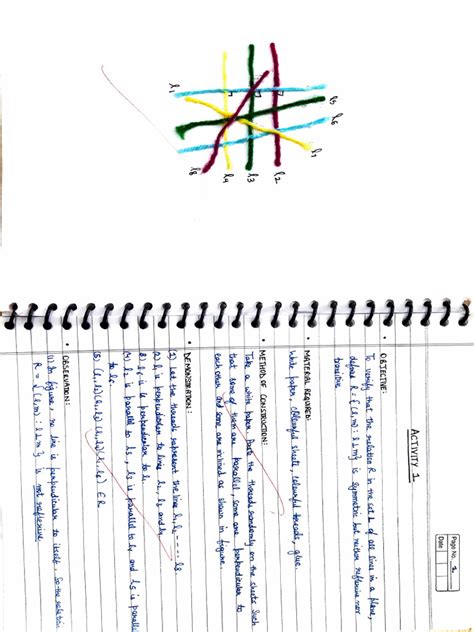 Page No. 1
Date
ACTIVITY 1
• OBJECTIVE:
To verify that the relation R in the set L of all lines in a plane,
define R = {(l,m) : l⊥m} is symmetric but neither reflexive nor
transitive
MATERIAL REQUIRED:
White paper, colourful sheets, colourful threads, glue.
• METHOD OF CONSTRUCTION:
Take a white paper. Paste the threads randomly on the sheets such
that some of them are parallel, some are perpendicular to
each other and some are inclined as shown in figure.
• DEMONSTRATION:
(1) Let the threads represent the line l₁, l₂ ---- l₈
(2) l₁ is perpendicular to lines l₂, l₃ and l₄
3) is perpendicular to
(4) l₂ is parallel to l₃, l₃ is parallel to l₄ and is parallel
to
(5) ∈ R
• OBSERVATION:
(1) In figure, no line is perpendicular to itself. So the relation
R = {(l,m) : l⊥m} is not reflexive.
l₁
l₅
l₆
l₇
l₂
l₃
l₄
l₈